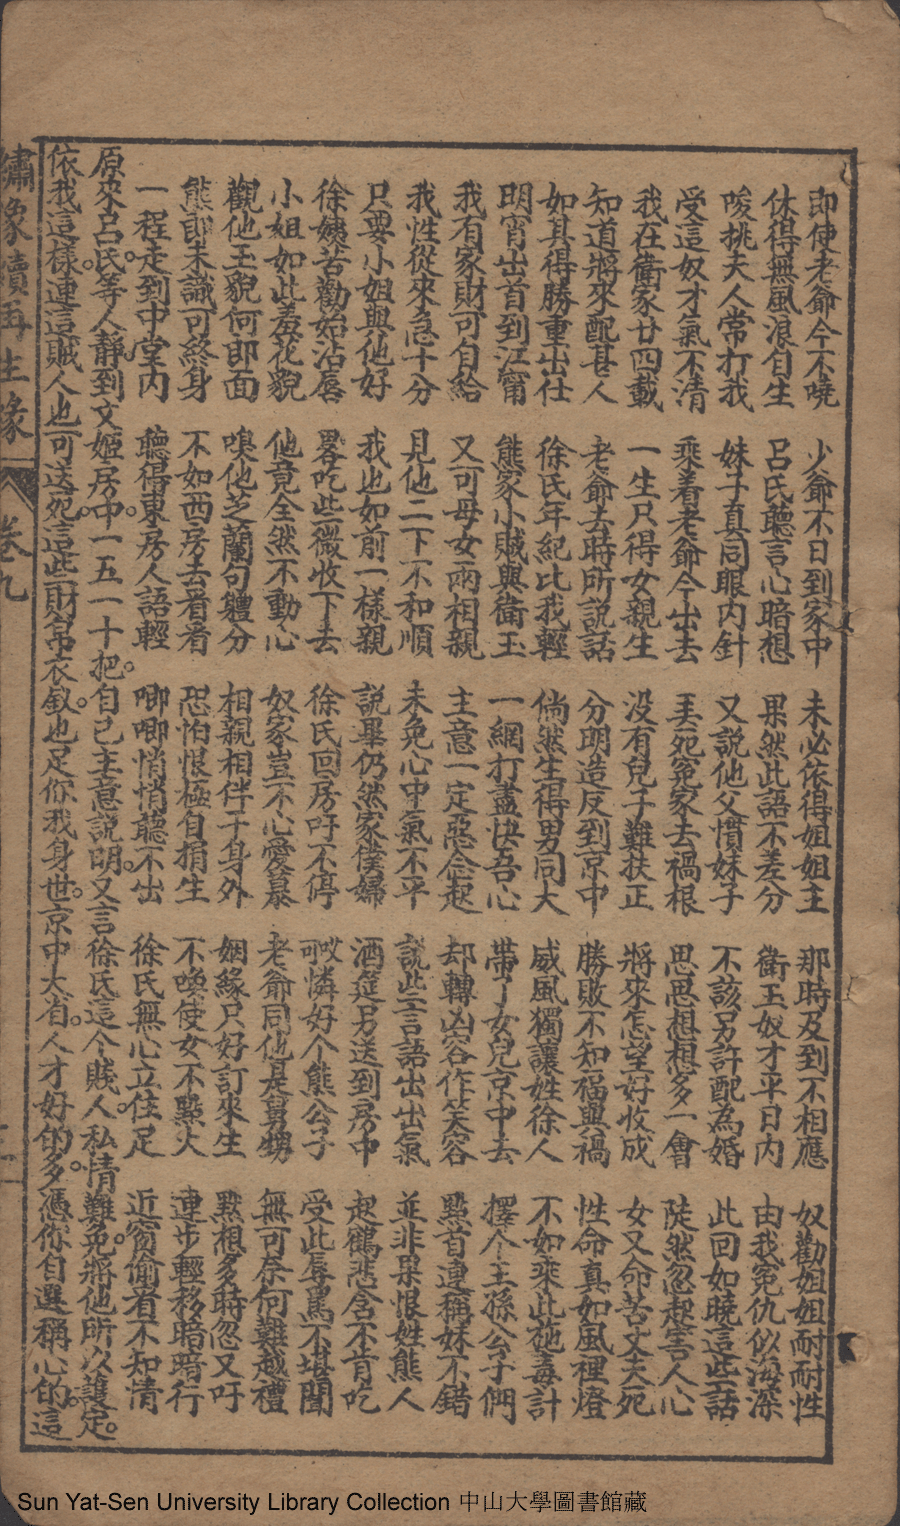 即使老爺今不曉 少爺不日到家中 未必依得姐姐主 那時反到不相應 奴勸姐姐耐耐性
休得無風浪自生 呂氏聽言心暗想 果然此語不差分 衛玉奴才平日內 由我冤仇似海深
唆挑夫人常打我 妹子真同眼內針 又説他父慣妹子 不該另許配為婚 此回如曉這些話
受這奴才氣不清 乘着老爺今出去 丟死冤家去禍根 思思想想多一會 陡然忽起害人心
我在衛家廿四載 一生只得女親生 没有兒子難扶正 將來怎望好收成 女又命苦丈夫死
知道將來配甚人 老爺去時所説話 分明造反到京中 勝敗不知福與禍 性命真如風裡燈
如其得勝重出仕 徐氏年紀比我輕 倘然生得男同大 威風獨讓姓徐人 不如乘此施毒計
明宵出首到江甯 熊家小賊與衛玉 一網打盡快吾心 帶了女兒京中去 擇个王孫公子們
我有家財可自給 又可母女兩相親 主意一定惡念起 却轉凶容作笑容 點首連稱妹不錯
我性從來急十分 見他二下不和順 未免心中氣不平 説些言語出出氣 並非果恨姓熊人
只要小姐與他好 我也如前一樣親 説畢仍然家僕婦 酒筵另送到房中 起鶴悲含不肯吃
徐姨苦勸始沾唇 畧吃些微收下去 徐氏回房吁不停 可憐好个熊公子 受此辱罵不堪聞
小姐如此羞花貌 他竟全然不動心 奴家豈不心愛慕 老爺同他是舅甥 無可奈何難越禮
觀他玉貌何郎面 嗅他芝蘭句體分 相親相伴于身外 姻緣只好訂來生 默想多時忽又吁
熊郎未識可終身 不如西房去看看 恐怕恨極自捐生 不喚使女不點火 連步輕移暗暗行
一程走到中堂內 聽得東房人語輕 唧唧悄悄聽不出 徐氏無心立住足 近窗偷看不知情
原來呂氏等人靜到文姬房中一五一十把自己主意説明又言徐氏這个賤人私情難免將他所以護定
依我這樣連這賊人也可送死這些財帛衣釵也足你我身世京中大省人才好的多憑你自選稱心的這
繡像續再生緣 卷九
Sun Yat-Sen University Library Collection 中山大學圖書館藏